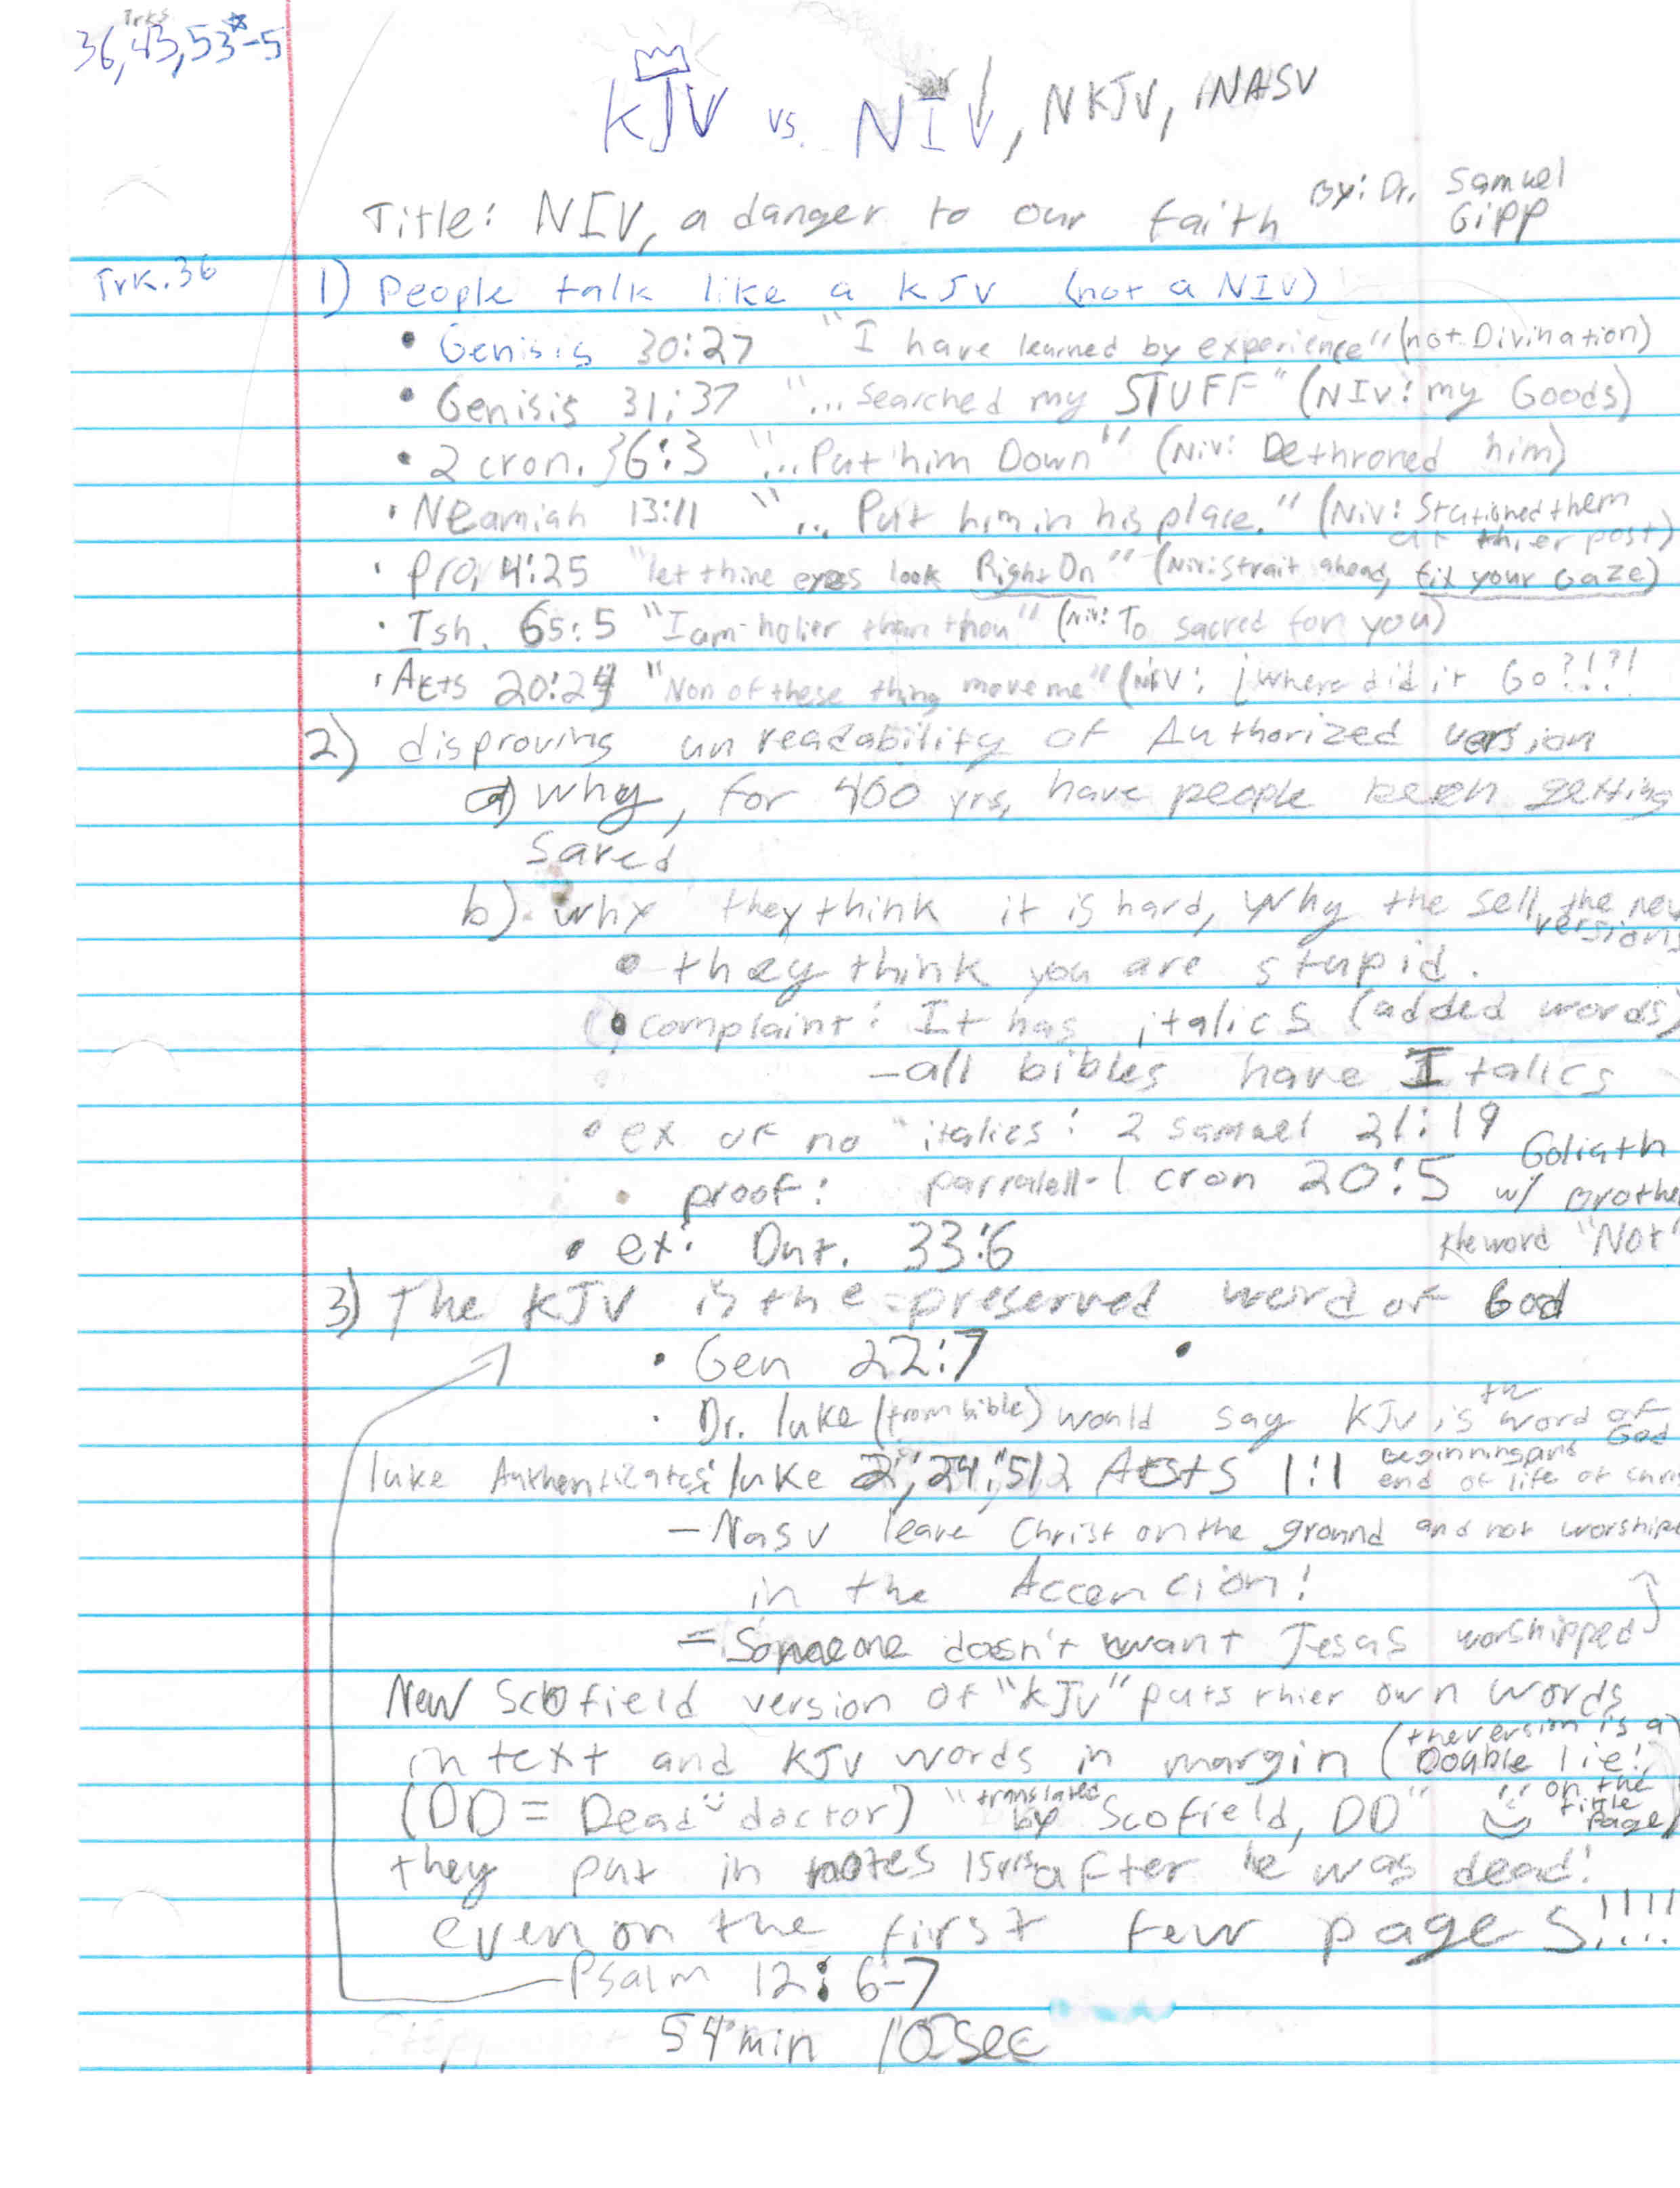 Trks
36,43,53*-5
KJV vs. NIV, NKJV, NASV
Title: NIV, a danger to our faith By: Dr. Samuel
Gipp
Trk.36
1) People talk like a KJV (not a NIV)
• Genisis 30:27 "I have learned by experience" (not Divination)
• Genisis 31:37 "... searched my STUFF" (NIV: my Goods)
• 2 cron. 36:3 "... Put him Down" (Niv: Dethroned him)
• Neamiah 13:11 "... Put him in his place." (Niv: Stationed them
at thier post)
• pro, 4:25 "let thine eyes look Right On" (Niv: Strait ahead, fix your Gaze)
• Ish. 65:5 "I am holier than thou" (Niv: To sacred for you)
• Acts 20:24 "Non of these thing move me" (NIV: ¿where did it Go?!?!
2) disproving unreadability of Authorized version
a) why, for 400 yrs, have people been getting
saved
b) why they think it is hard, why the sell the new
versions
• they think you are stupid.
• complaint: It has italics (added words)
- all bibles have Italics
• ex of no italics: 2 samuel 21:19 Goliath
• proof: parralell - 1 cron 20:5 w/ Brothe
• ex: Dut. 33:6 the word "Not"
3) The KJV is the preserved word of God
• Gen 22:7 •
• Dr. luke (from bible) would say KJV is the word of
God
luke Authenticates: luke 24:51,2 Acts 1:1 Beginning and
end of life of chri
- Nasv leave Christ on the ground and not worshipe
in the Accencion!
= Someone doesn't want Jesas worshipped
New Scofield version of "KJV" puts thier own words
in text and KJV words in margin (the version is a
Double lie!
on the
title
page)
(DD = Dead doctor) "translated by Scofield, DD"
they put in notes 15yrs after he was dead!
even on the first few pages!!!!
Psalm 12:6-7
54 min 10 sec